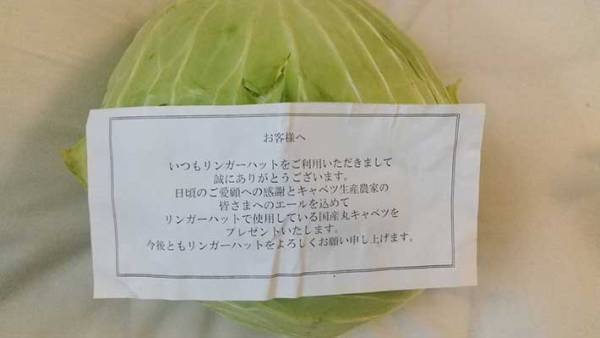 お客様へ
いつもリンガーハットをご利用いただきまして
誠にありがとうございます。
日頃のご愛顧への感謝とキャベツ生産農家の
皆さまへのエールを込めて
リンガーハットで使用している国産丸キャベツを
プレゼントいたします。
今後ともリンガーハットをよろしくお願い申し上げます。